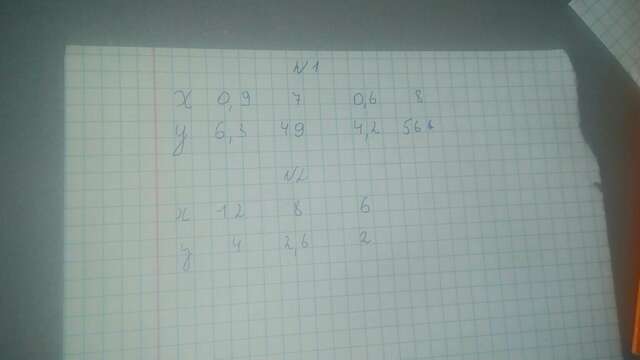 №1
x 0,9 7 0,6 8
y 6,3 49 4,2
№2
x 12 8 6
y 4 2,6 2